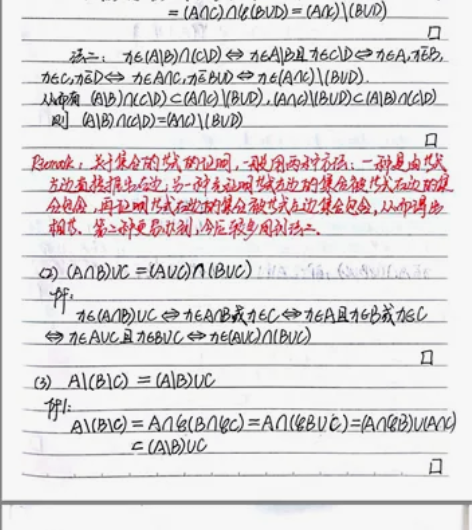 = (A∩C)∩∁(B∪D) = (A∩C)\(B∪D)
□
法二: x∈(A\B)∩(C\D) ⇔ x∈A\B且x∈C\D ⇔ x∈A, x∈̄B,
x∈C, x∈̄D ⇔ x∈A∩C, x∈̄B∪D ⇔ x∈(A∩C)\(B∪D).
从而有 (A\B)∩(C\D)⊂(A∩C)\(B∪D), (A∩C)\(B∪D)⊂(A\B)∩(C\D)
则 (A\B)∩(C\D)=(A∩C)\(B∪D)
□
Remark: 关于集合的等式的证明,一般用两种方法:一种是由等式
左边直接推出右边;另一种先证明等式左边的集合被等式右边的集
合包含,再证明等式右边的集合被等式左边集合包含,从而得出
相等. 第二种更易求到,今后较多用到法二.
(2) (A∩B)∪C = (A∪C)∩(B∪C)
证:
x∈(A∩B)∪C ⇔ x∈A∩B或x∈C ⇔ x∈A且x∈B或x∈C
⇔ x∈A∪C且x∈B∪C ⇔ x∈(A∪C)∩(B∪C)
□
(3) A\(B\C) = (A\B)∪C
证:
A\(B\C) = A∩∁(B∩∁C) = A∩(∁B∪C) = (A∩∁B)∪(A∩C)
⊂ (A\B)∪C
□